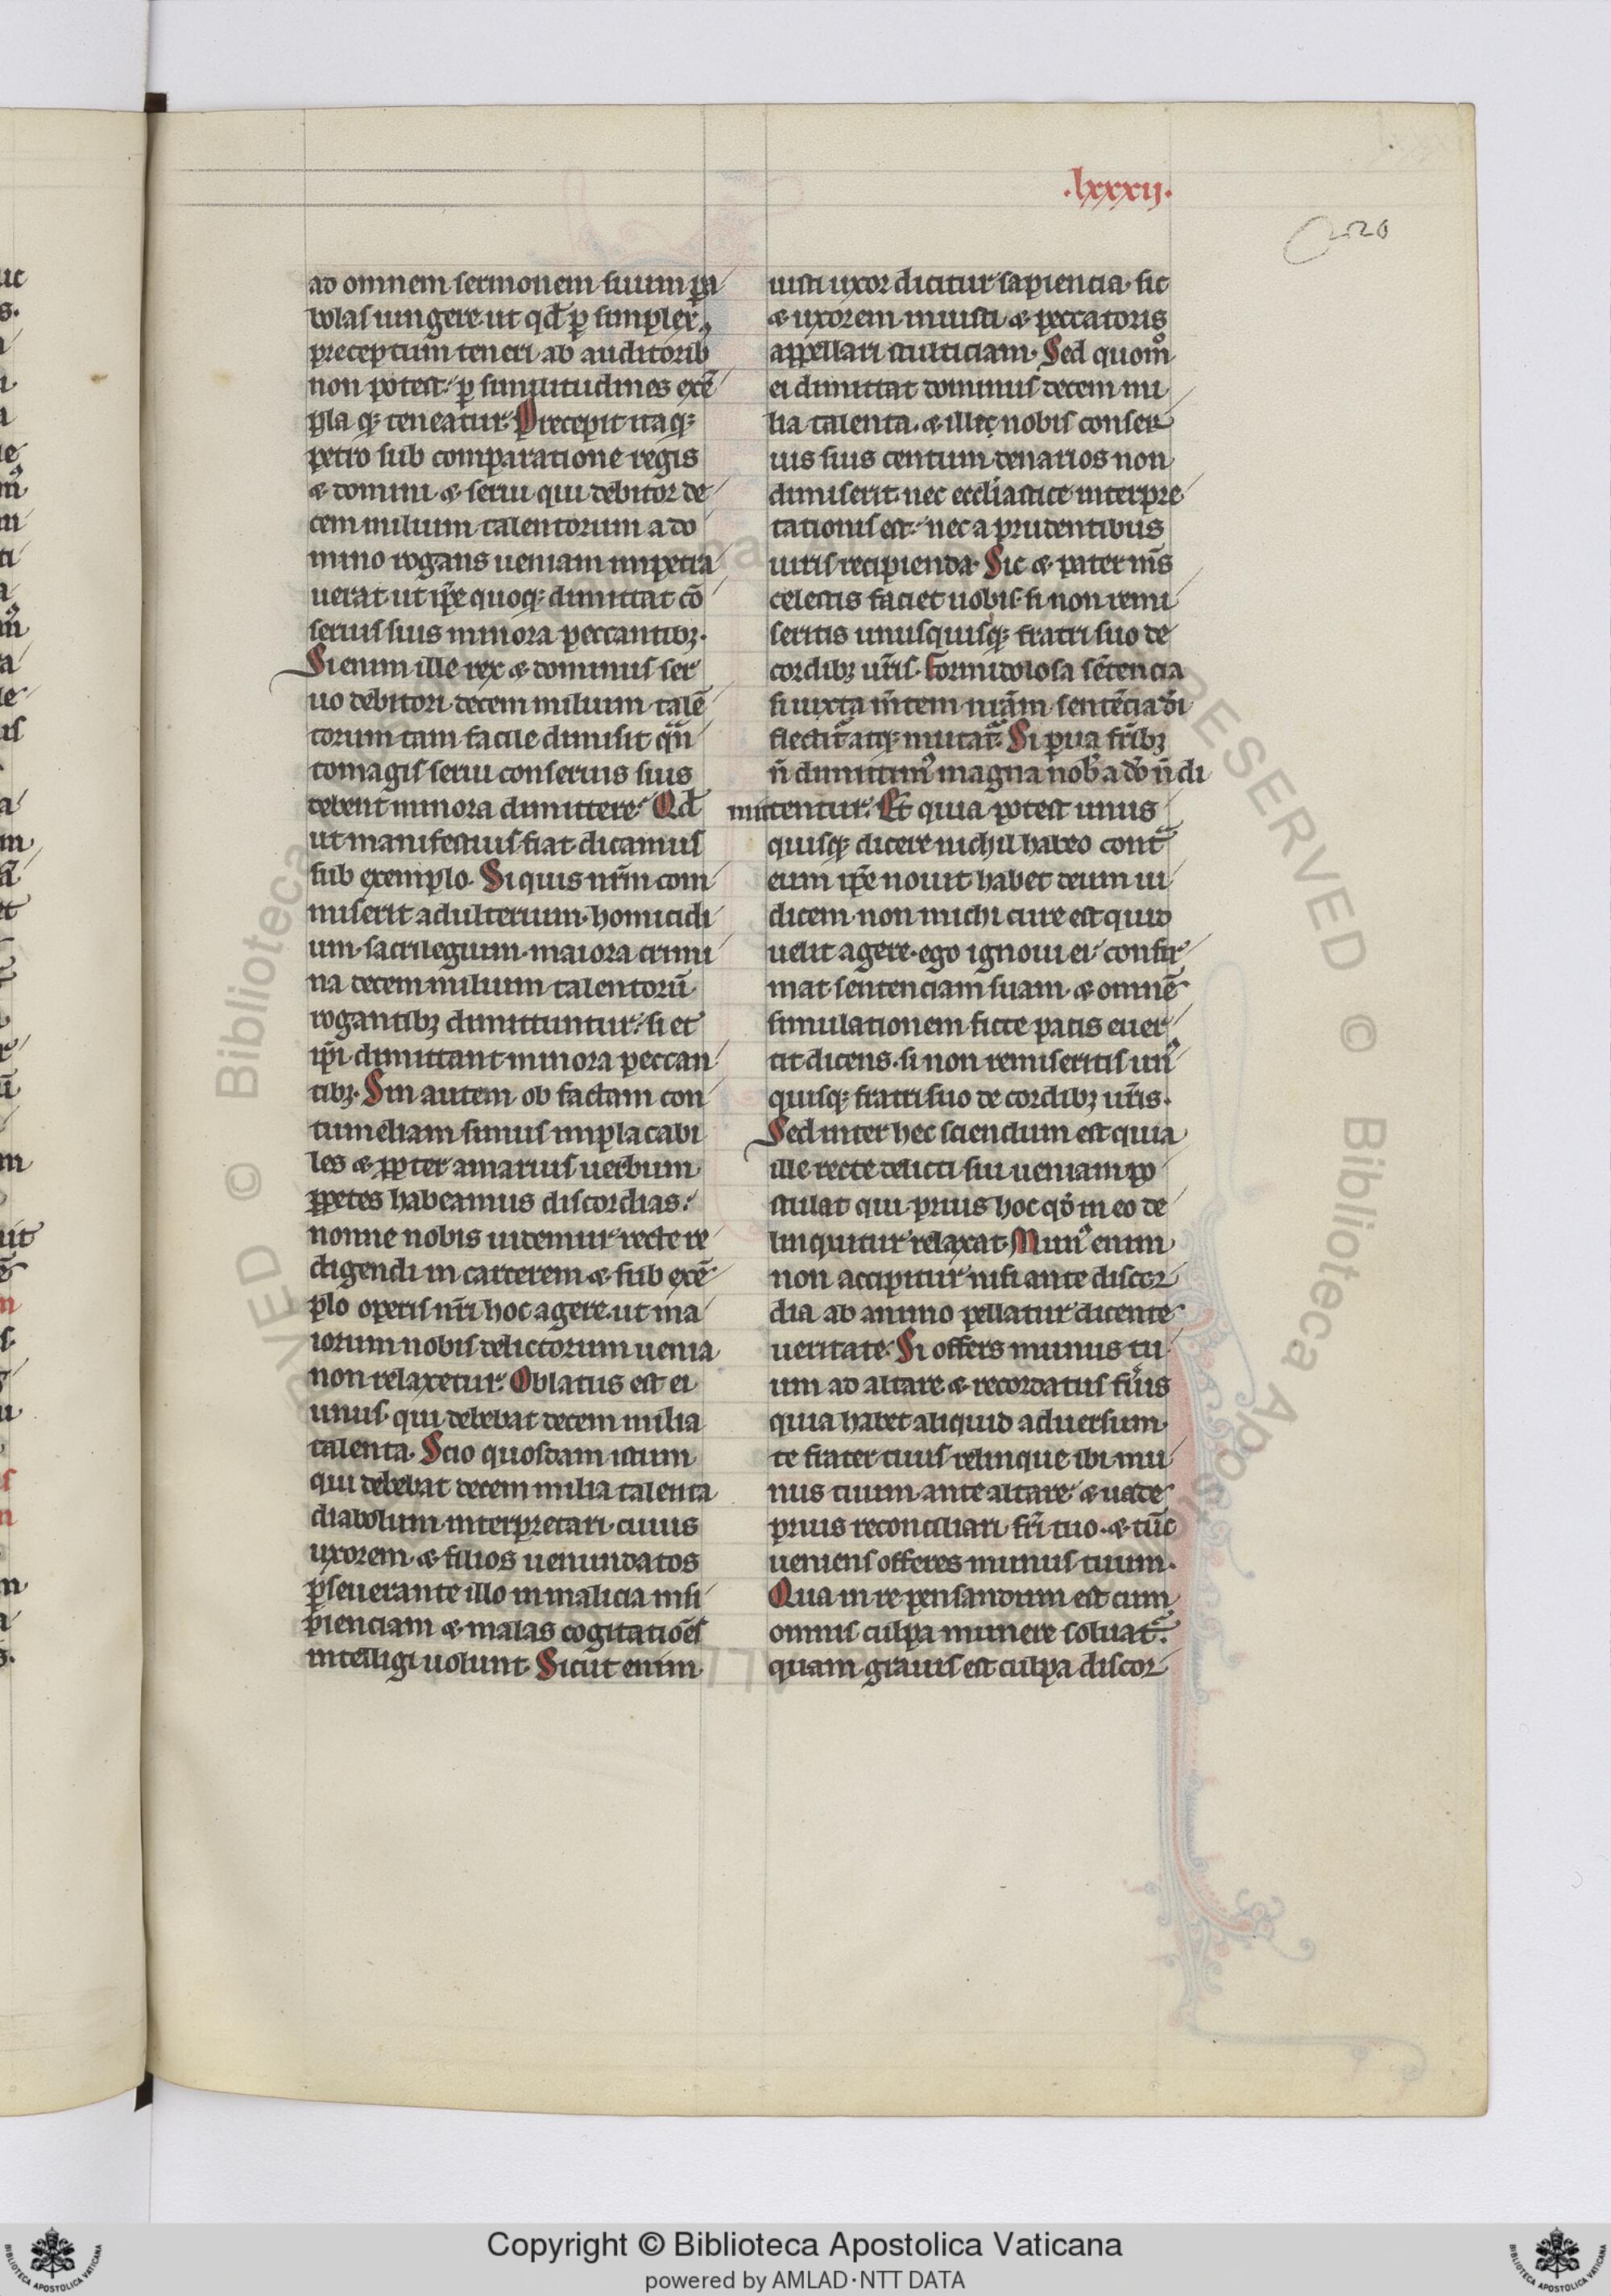 .lxxxij.
220
ad omnem sermonem suum pa
bolas iungere ut qđ ꝑ simplex
preceptum teneri ab auditorib
non potest ꝑ similitudines exē
pla qꝫ teneatur. Precepit itaqꝫ
petro sub comparatione regis
⁊ domini ⁊ serui qui debitor de
cem milium talentorum a do
mino rogans ueniam impetra
uerat ut ip̄e quoqꝫ dimittat cō
seruis suis minora peccantibꝫ.
Si enim ille rex ⁊ dominus ser
uo debitori decem milium talē
torum tam facile dimisit quā
tomagis serui conseruis suis
debent minora dimittere. Qđ
ut manifestius fiat dicamus
sub exemplo. Si quis nr̄m com
miserit adulterium. homicidi
um. sacrilegium. maiora crimi
na decem milium talentorū
rogantibꝫ dimittuntur. si et
ip̄i dimittant minora peccan
tibꝫ. Sin autem ob factam con
tumeliam simus implacabi
les ⁊ ꝓpter amarius uerbum
ꝑpetes habeamus discordias.
nonne nobis uidemur recte re
digendi in carcerem ⁊ sub exē
plo operis nr̄i hoc agere. ut ma
iorum nobis delictorum uenia
non relaxetur. Oblatus est ei
unus. qui debebat decem milia
talenta. Scio quosdam istum
qui debebat decem milia talenta
diabolum interpretari. cuius
uxorem ⁊ filios uenundatos
ꝑseuerante illo in malicia insi
pienciam ⁊ malas cogitatiōes
intelligi uolunt. Sicut enim
iusti uxor dicitur sapiencia. sic
⁊ uxorem iniusti ⁊ peccatoris
appellari stulticiam. Sed quom̊
ei dimittat dominus decem mi
lia talenta. ⁊ ille nobis conser
uis suis centum denarios non
dimiserit nec eccl̄iastice interpre
tationis est. nec a prudentibus
uiris recipienda. Sic ⁊ pater m̄s
celestis faciet uobis. si non remi
seritis unusquisqꝫ fratri suo de
cordibꝫ ur̄is. Formidolosa sētencia
si iuxta m̄tem nr̄am sentēcia di
flectit᷑ atqꝫ mutat᷑. Si parua fr̄ibꝫ
n̄ dimittimꝰ magna nob̄ a dō n̄ di
mittentur. Et quia potest unus
quisqꝫ dicere nichil habeo cont᷑
eum ip̄e nouit habet deum iu
dicem. non michi cure est quid
uelit agere. ego ignoui ei. confir
mat sentenciam suam. ⁊ omnē
simulationem ficte pacis euer
tit dicens. si non remiseritis unꝰ
quisqꝫ fratri suo de cordibꝫ ur̄is.
Sed inter hec sciendum est quia
ille recte delicti sui ueniam po
stulat qui prius hoc qđ in eo de
linquitur relaxat. Munꝰ enim
non accipitur nisi ante discor
dia ab animo pellatur dicente
ueritate. Si offers munus tu
um ad altare. ⁊ recordatus fu͛is
quia habet aliquid aduersum
te frater tuus relinque ibi mu
nus tuum ante altare ⁊ uade
prius reconciliari fr̄i tuo. ⁊ tūc
ueniens offeres munus tuum.
Qua in re pensandum est cum
omnis culpa munere soluat᷑.
quam grauis est culpa discor
Copyright © Biblioteca Apostolica Vaticana
powered by AMLAD·NTT DATA